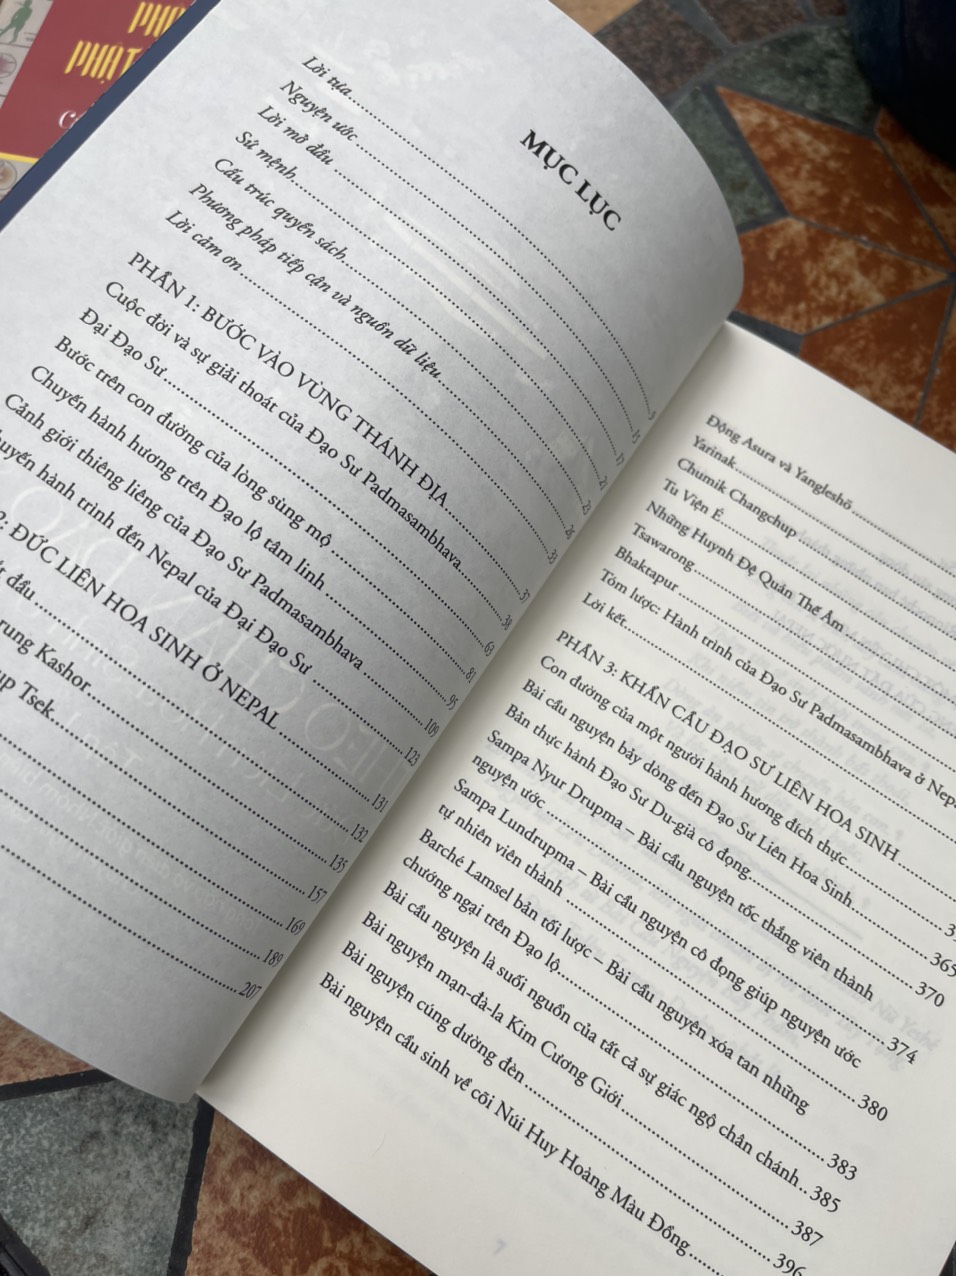 PHẬT
MỤC LỤC
Lời tựa
Nguyện ước 15
Lời mở đầu 17
Sứ mệnh 21
Cấu trúc quyển sách 23
Phương pháp tiếp cận và nguồn dữ liệu 26
Lời cảm ơn 33
PHẦN 1: BƯỚC VÀO VÙNG THÁNH ĐỊA
Cuộc đời và sự giải thoát của Đạo Sư Padmasambhava 37
Đại Đạo Sư 39
Bước trên con đường của lòng sùng mộ 63
Chuyến hành hương trên Đạo lộ tâm linh 81
Cảnh giới thiêng liêng của Đạo Sư Padmasambhava 95
hành trình đến Nepal của Đại Đạo Sư 109
2: ĐỨC LIÊN HOA SINH Ở NEPAL 123
đầu 131
Kashor 132
Tsek 135
157
169
189
207
Động Asura và Yangleshö
Yarinak
Chumik Changchup
Tu Viện Ê
Những Huynh Đệ Quán Thế Âm
Tsawarong
Bhaktapur
Tóm lược: Hành trình của Đạo Sư Padmasambhava ở
Lời kết
PHẦN 3: KHẨN CẦU ĐẠO SƯ LIÊN HOA SINH
Con đường của một người hành hương đích thực
Bài cầu nguyện bảy dòng đến Đạo Sư Liên Hoa Sinh
Bản thực hành Đạo Sư Du-già cô đọng 365
Sampa Nyur Drupma – Bài cầu nguyện tốc thắng viên thành
nguyện ước 370
Sampa Lundrupma – Bài cầu nguyện cô đọng giúp nguyện ước
tự nhiên viên thành 374
Barché Lamsel bản tối lược – Bài cầu nguyện xóa tan những
chướng ngại trên Đạo lộ 380
Bài cầu nguyện là suối nguồn của tất cả sự giác ngộ chân chánh 383
Bài nguyện mạn-đà-la Kim Cương Giới 385
Bài nguyện cúng dường đèn 387
Bài nguyện cầu sinh về cõi Núi Huy Hoàng Màu Đồng 396
7